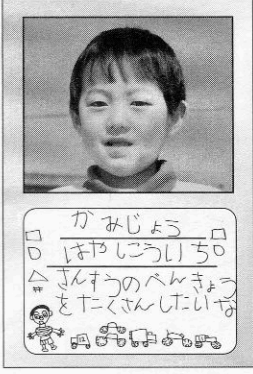 かみじょう
はやしこういち
さんすうのべんきょう
をたくさんしたいな